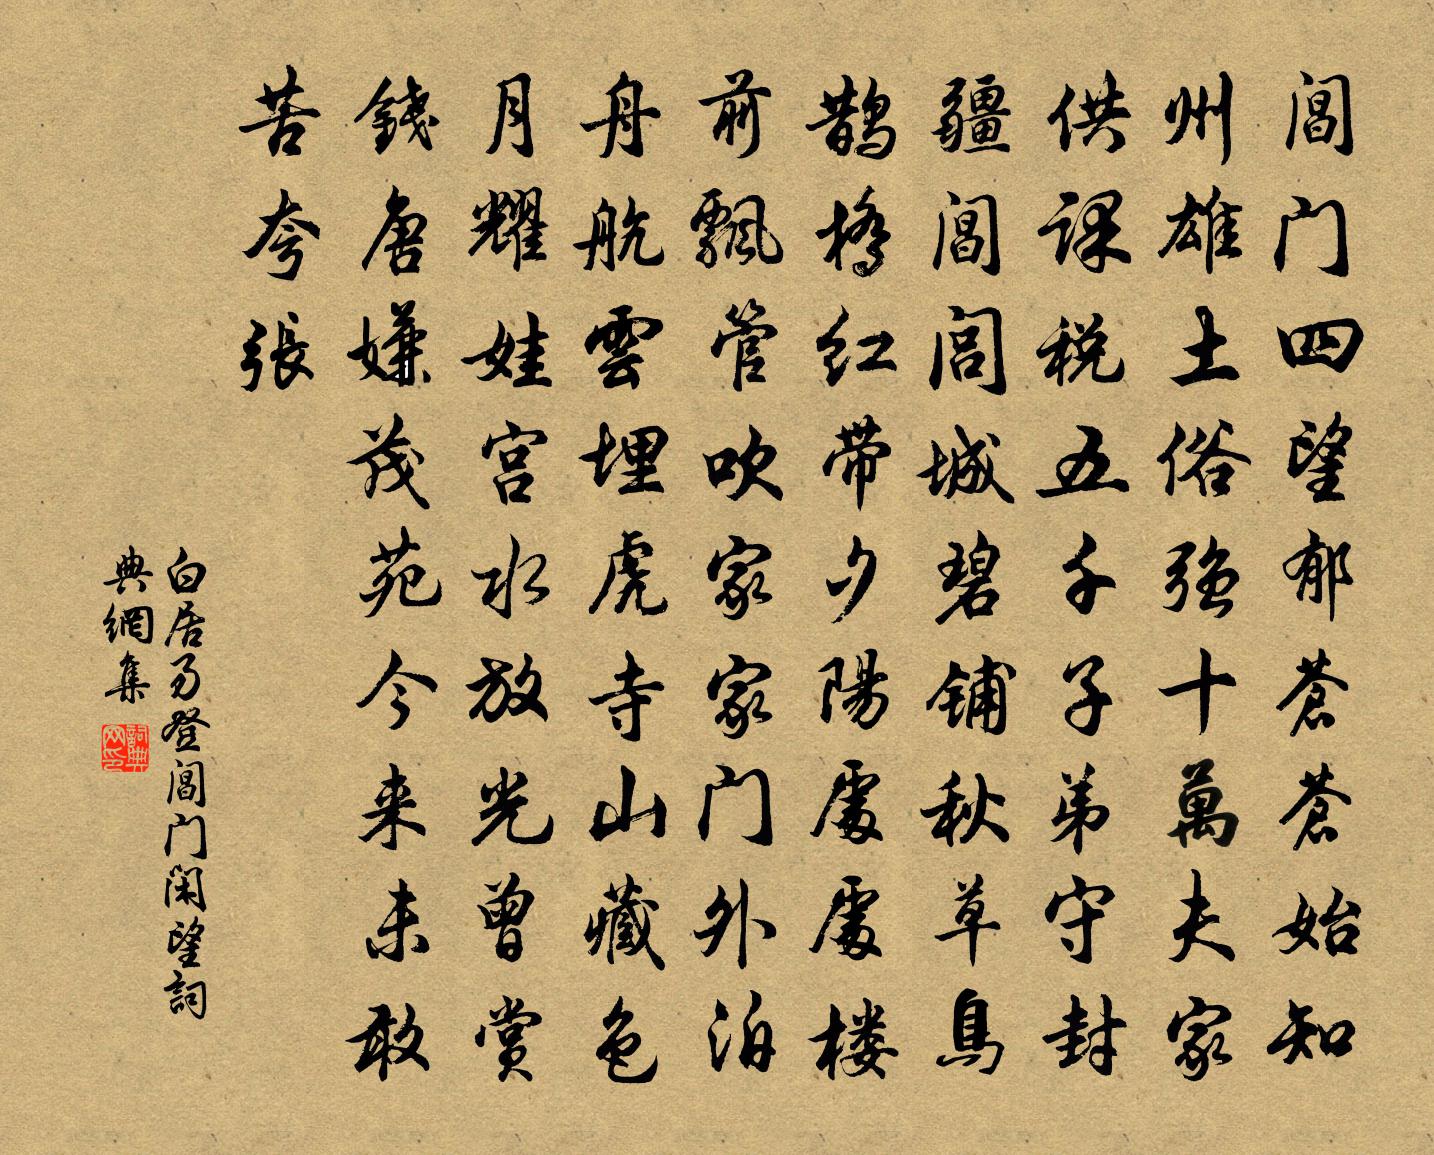 閶门四望郁蒼蒼始知
州雄土俗强十萬夫家
供课税五千子弟守封
疆閶闾城碧铺秋草烏
鹊橋红带夕陽處處楼
前飄管吹家家门外泊
舟航雲埋虎寺山藏色
月耀娃宫水放光曾赏
錢唐嫌茂苑今来未敢
苦夸張
白居易登閶门闲望詞
典網集
詞典网印